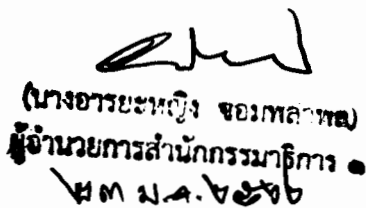 (นางอารยะหญิง จอมพลาพล)
ผู้อำนวยการสำนักกรรมาธิการ ๑
๒๓ ม.ค. ๒๕๖๒